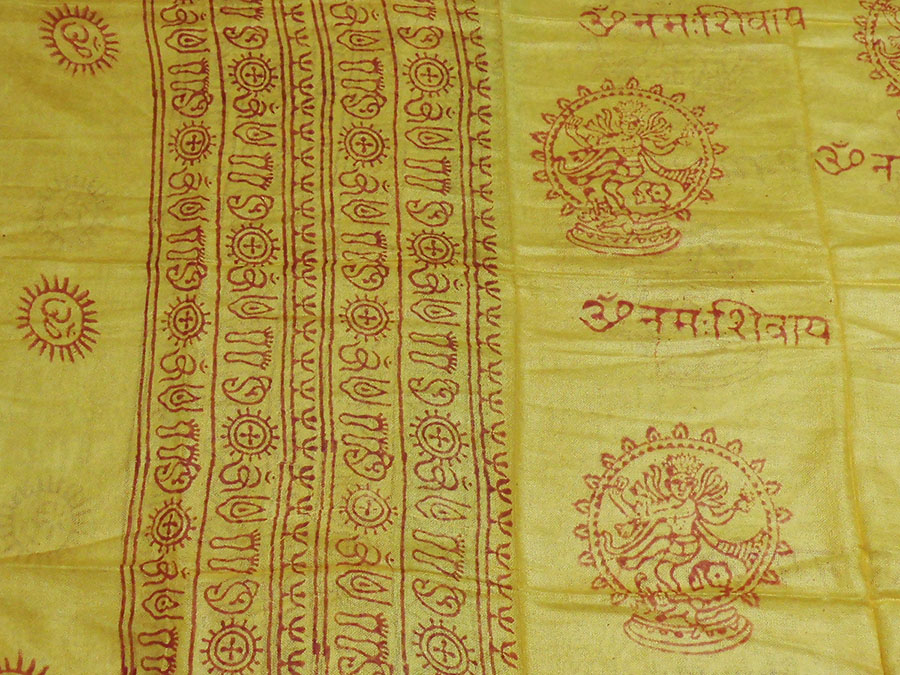 ॐ नमः शिवाय
ॐ न
ॐ नमः शिवाय
ॐ
ॐ